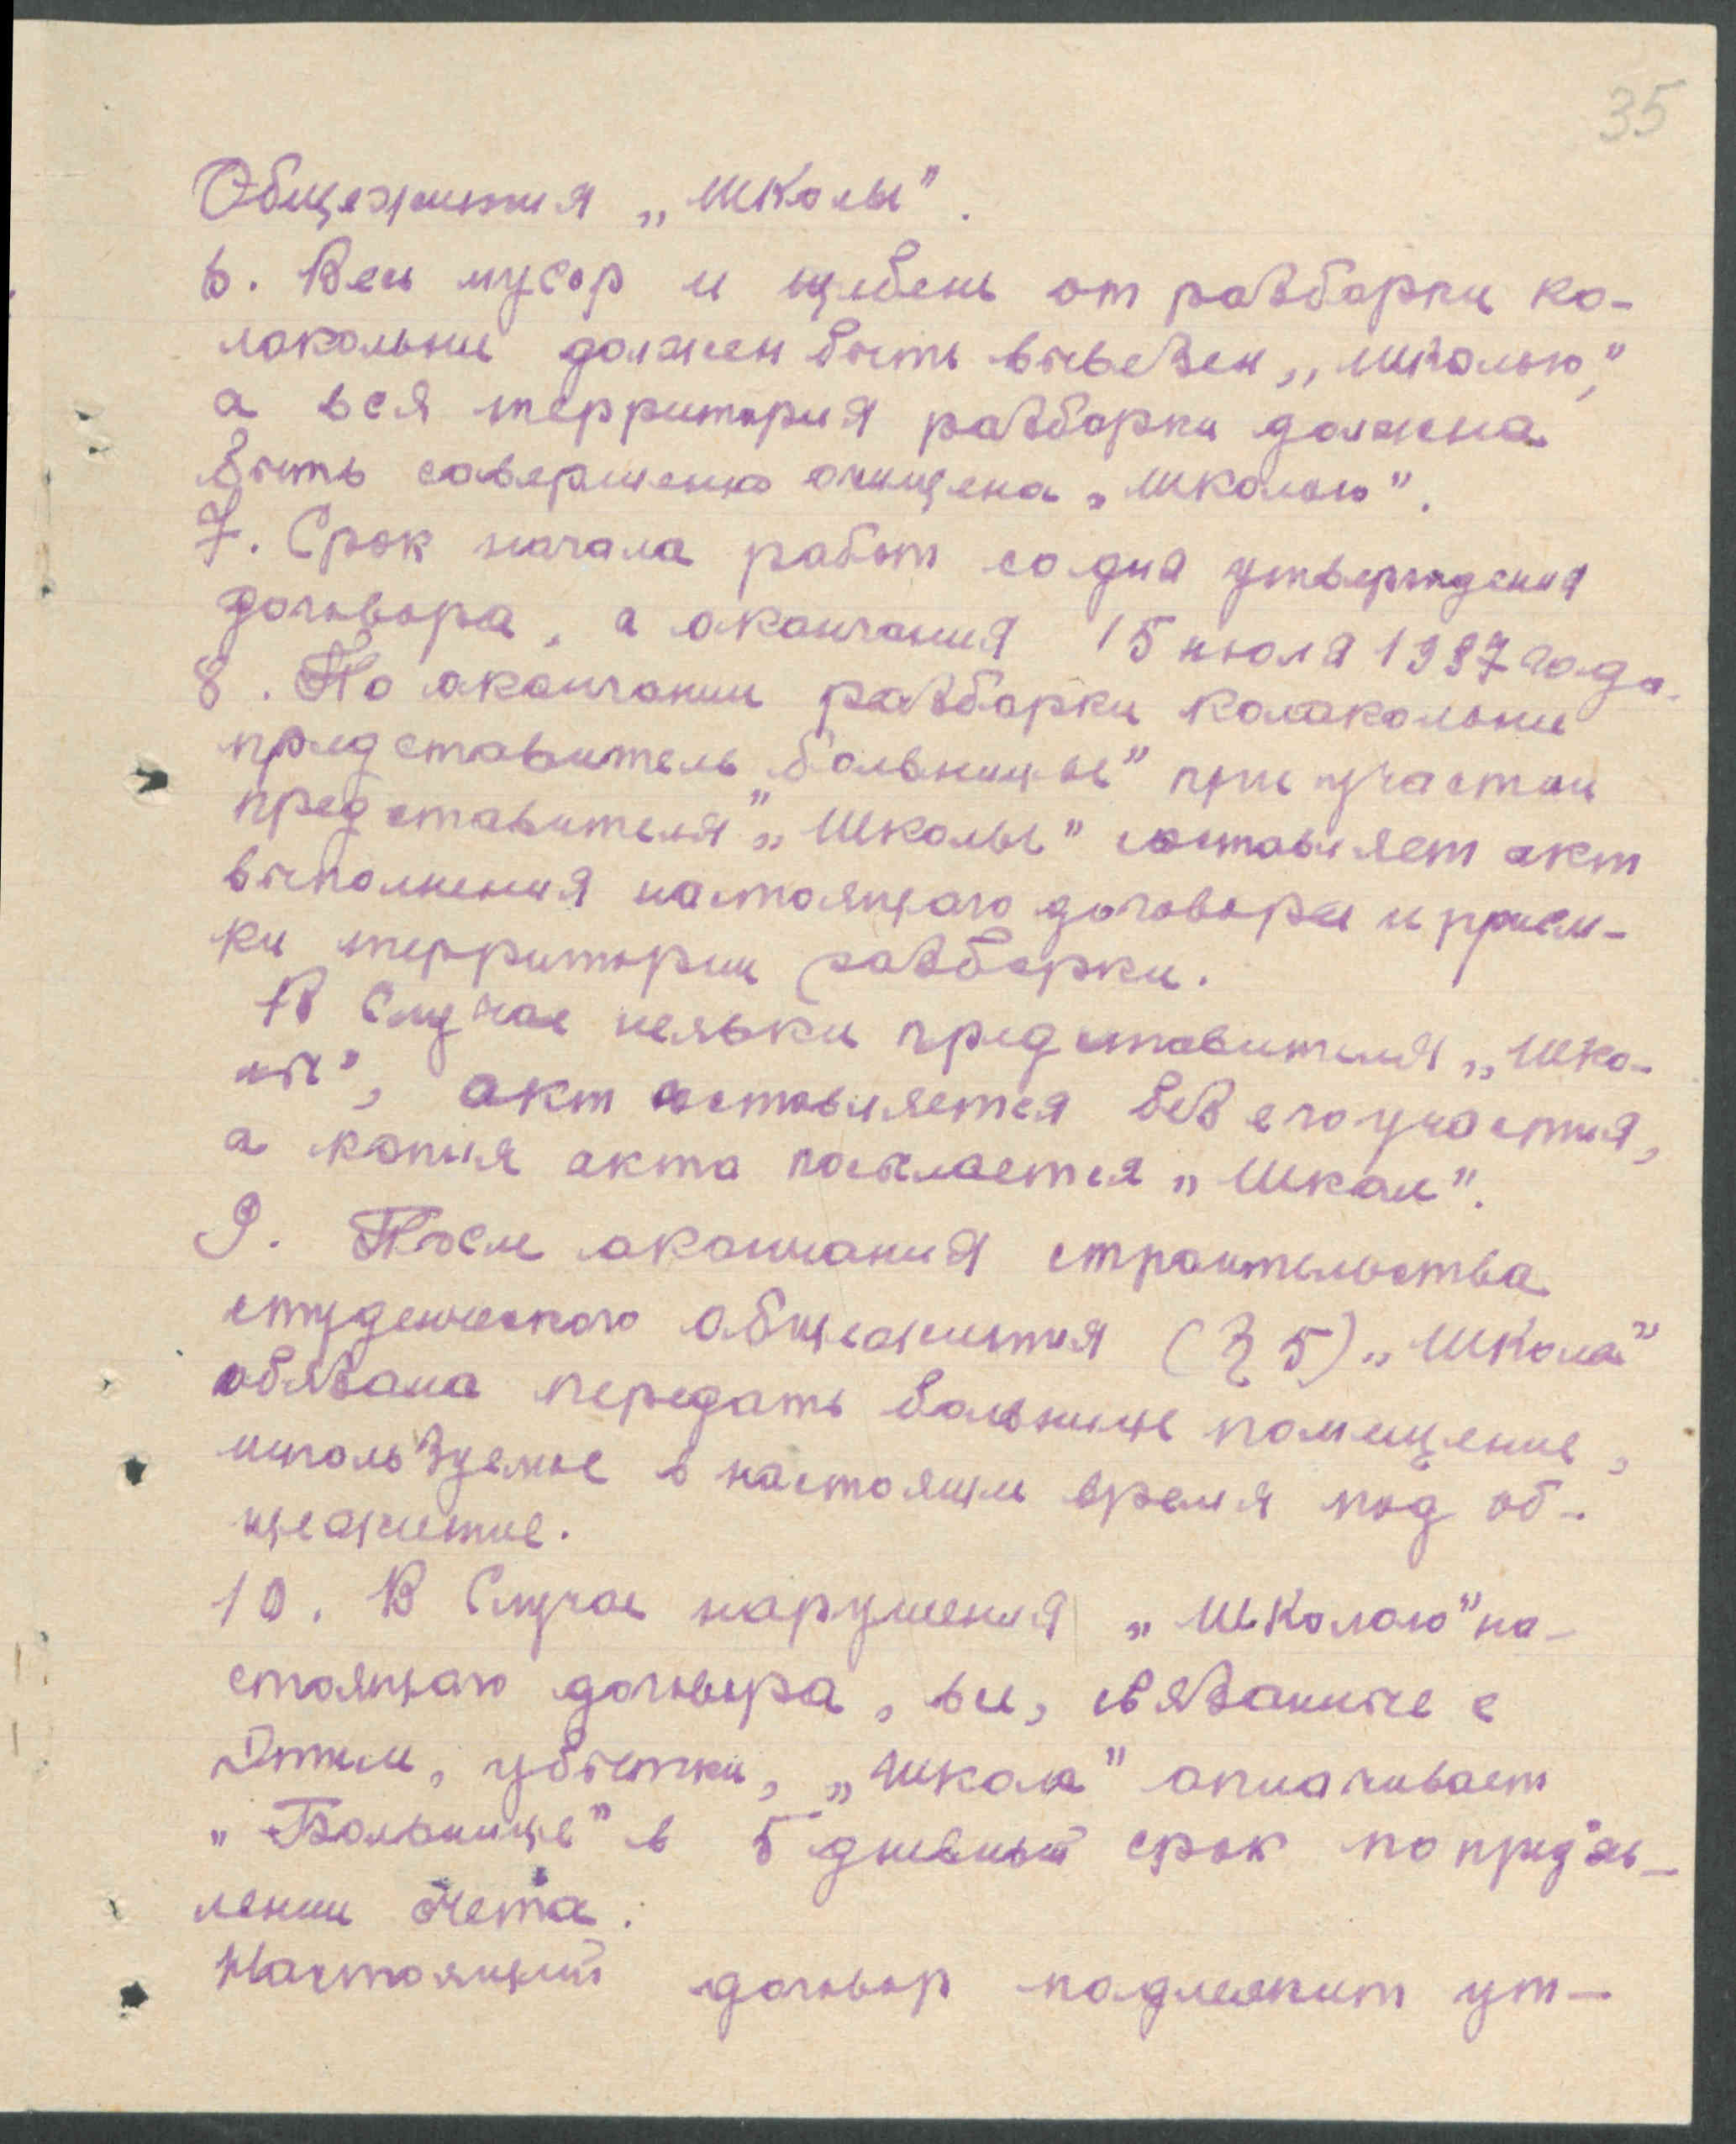 35
Общежития „Школы".
6. Весь мусор и щебень от разборки ко-
локольни должен быть вывезен „Школою",
а вся территория разборки должна
быть совершенно очищена „Школою".
7. Срок начала работ со дня утверждения
договора, а окончания 15 июля 1937 года.
8. По окончании разборки колокольни
представитель „Больницы" при участии
представителя „Школы" составляет акт
выполнения настоящего договора и прием-
ки территории разборки.
В Случае неявки представителя „Шко-
лы", акт составляется без его участия,
а копия акта посылается „Школе".
9. После окончания строительства
студенческого общежития (§ 5) „Школа"
обязана передать больнице помещение,
используемое в настоящее время под об-
щежитие.
10. В Случае нарушения „Школою" на-
стоящего договора, все, связанные с
этим, убытки, „Школа" оплачивает
„Больнице" в 5 дневный срок по пред'яв-
лении счета.
Настоящий договор подлежит ут-